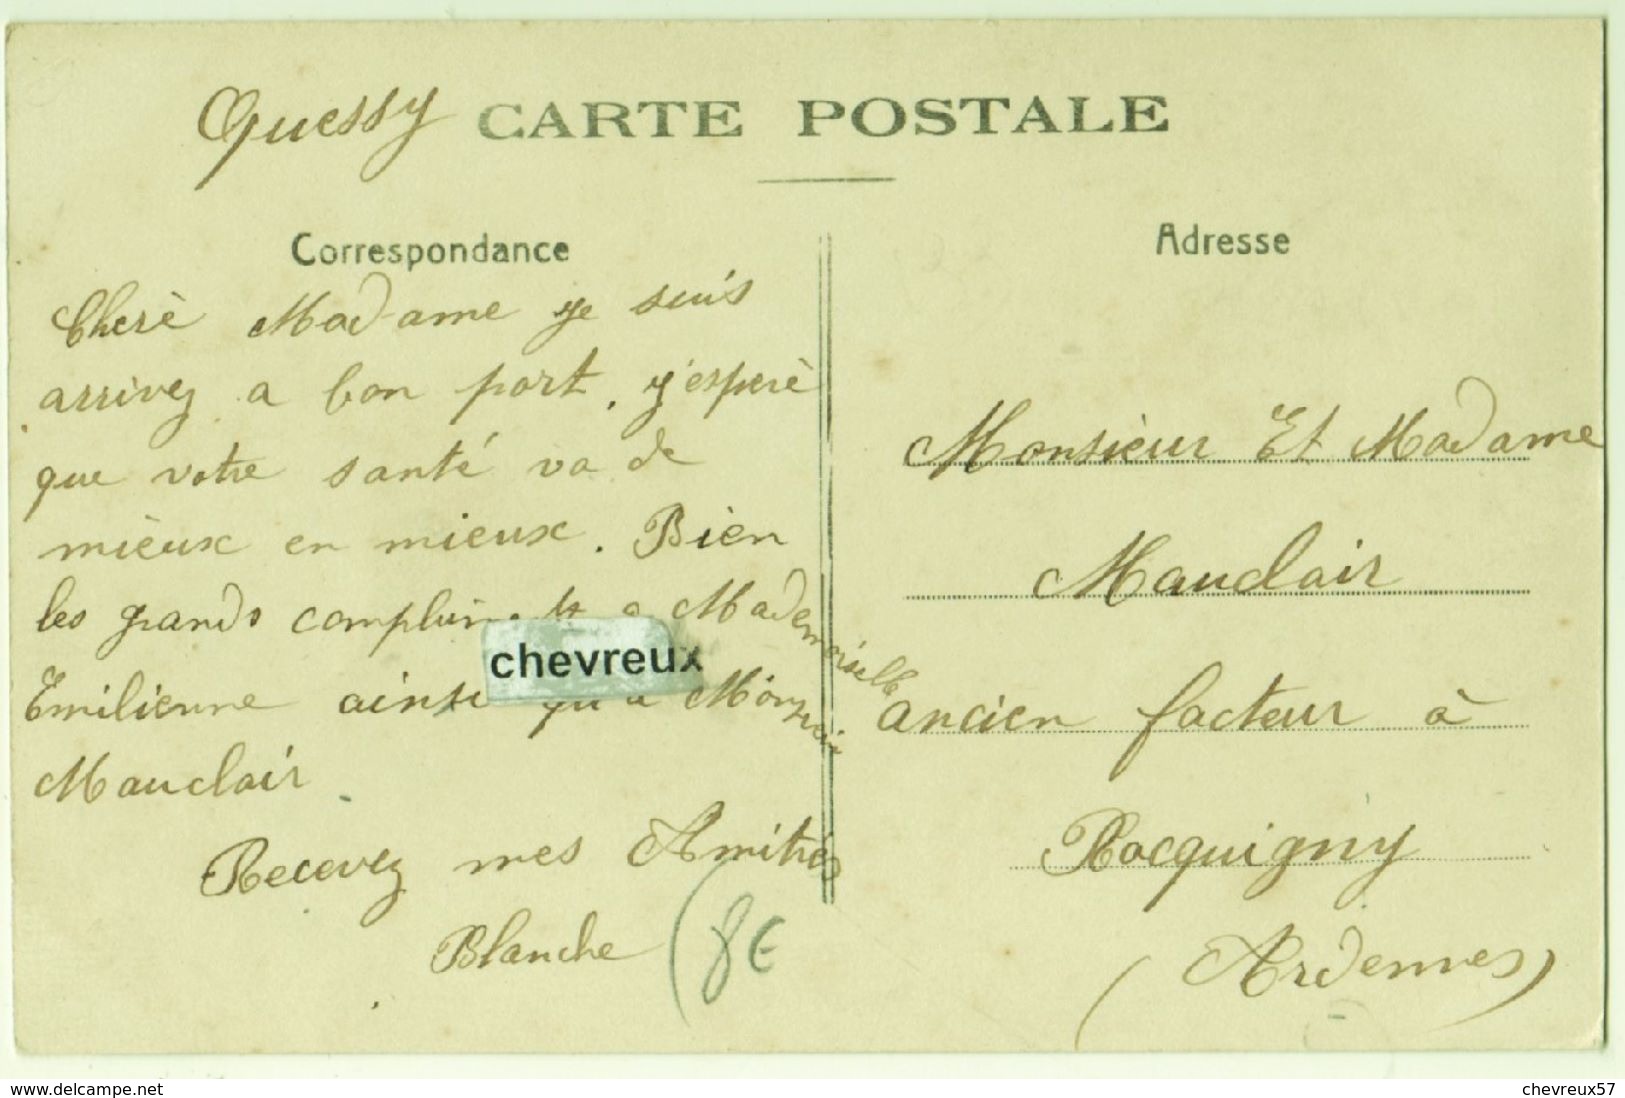 Quessy CARTE POSTALE
Correspondance
Cherè Madame je suis
arrivez a bon port. j'esperè
que votre santé va de
mièux en mieux. Bièn
les grands a Mademoiselle
Emilienne ainsi qu'a
Mauclair
Recevez mes Amitiés
Blanche
8€
chevreux
Adresse
Monsieur Et Madame
Mauclair
ancien facteur à
Rocquigny
(Ardennes)
www.delcampe.net
chevreux57